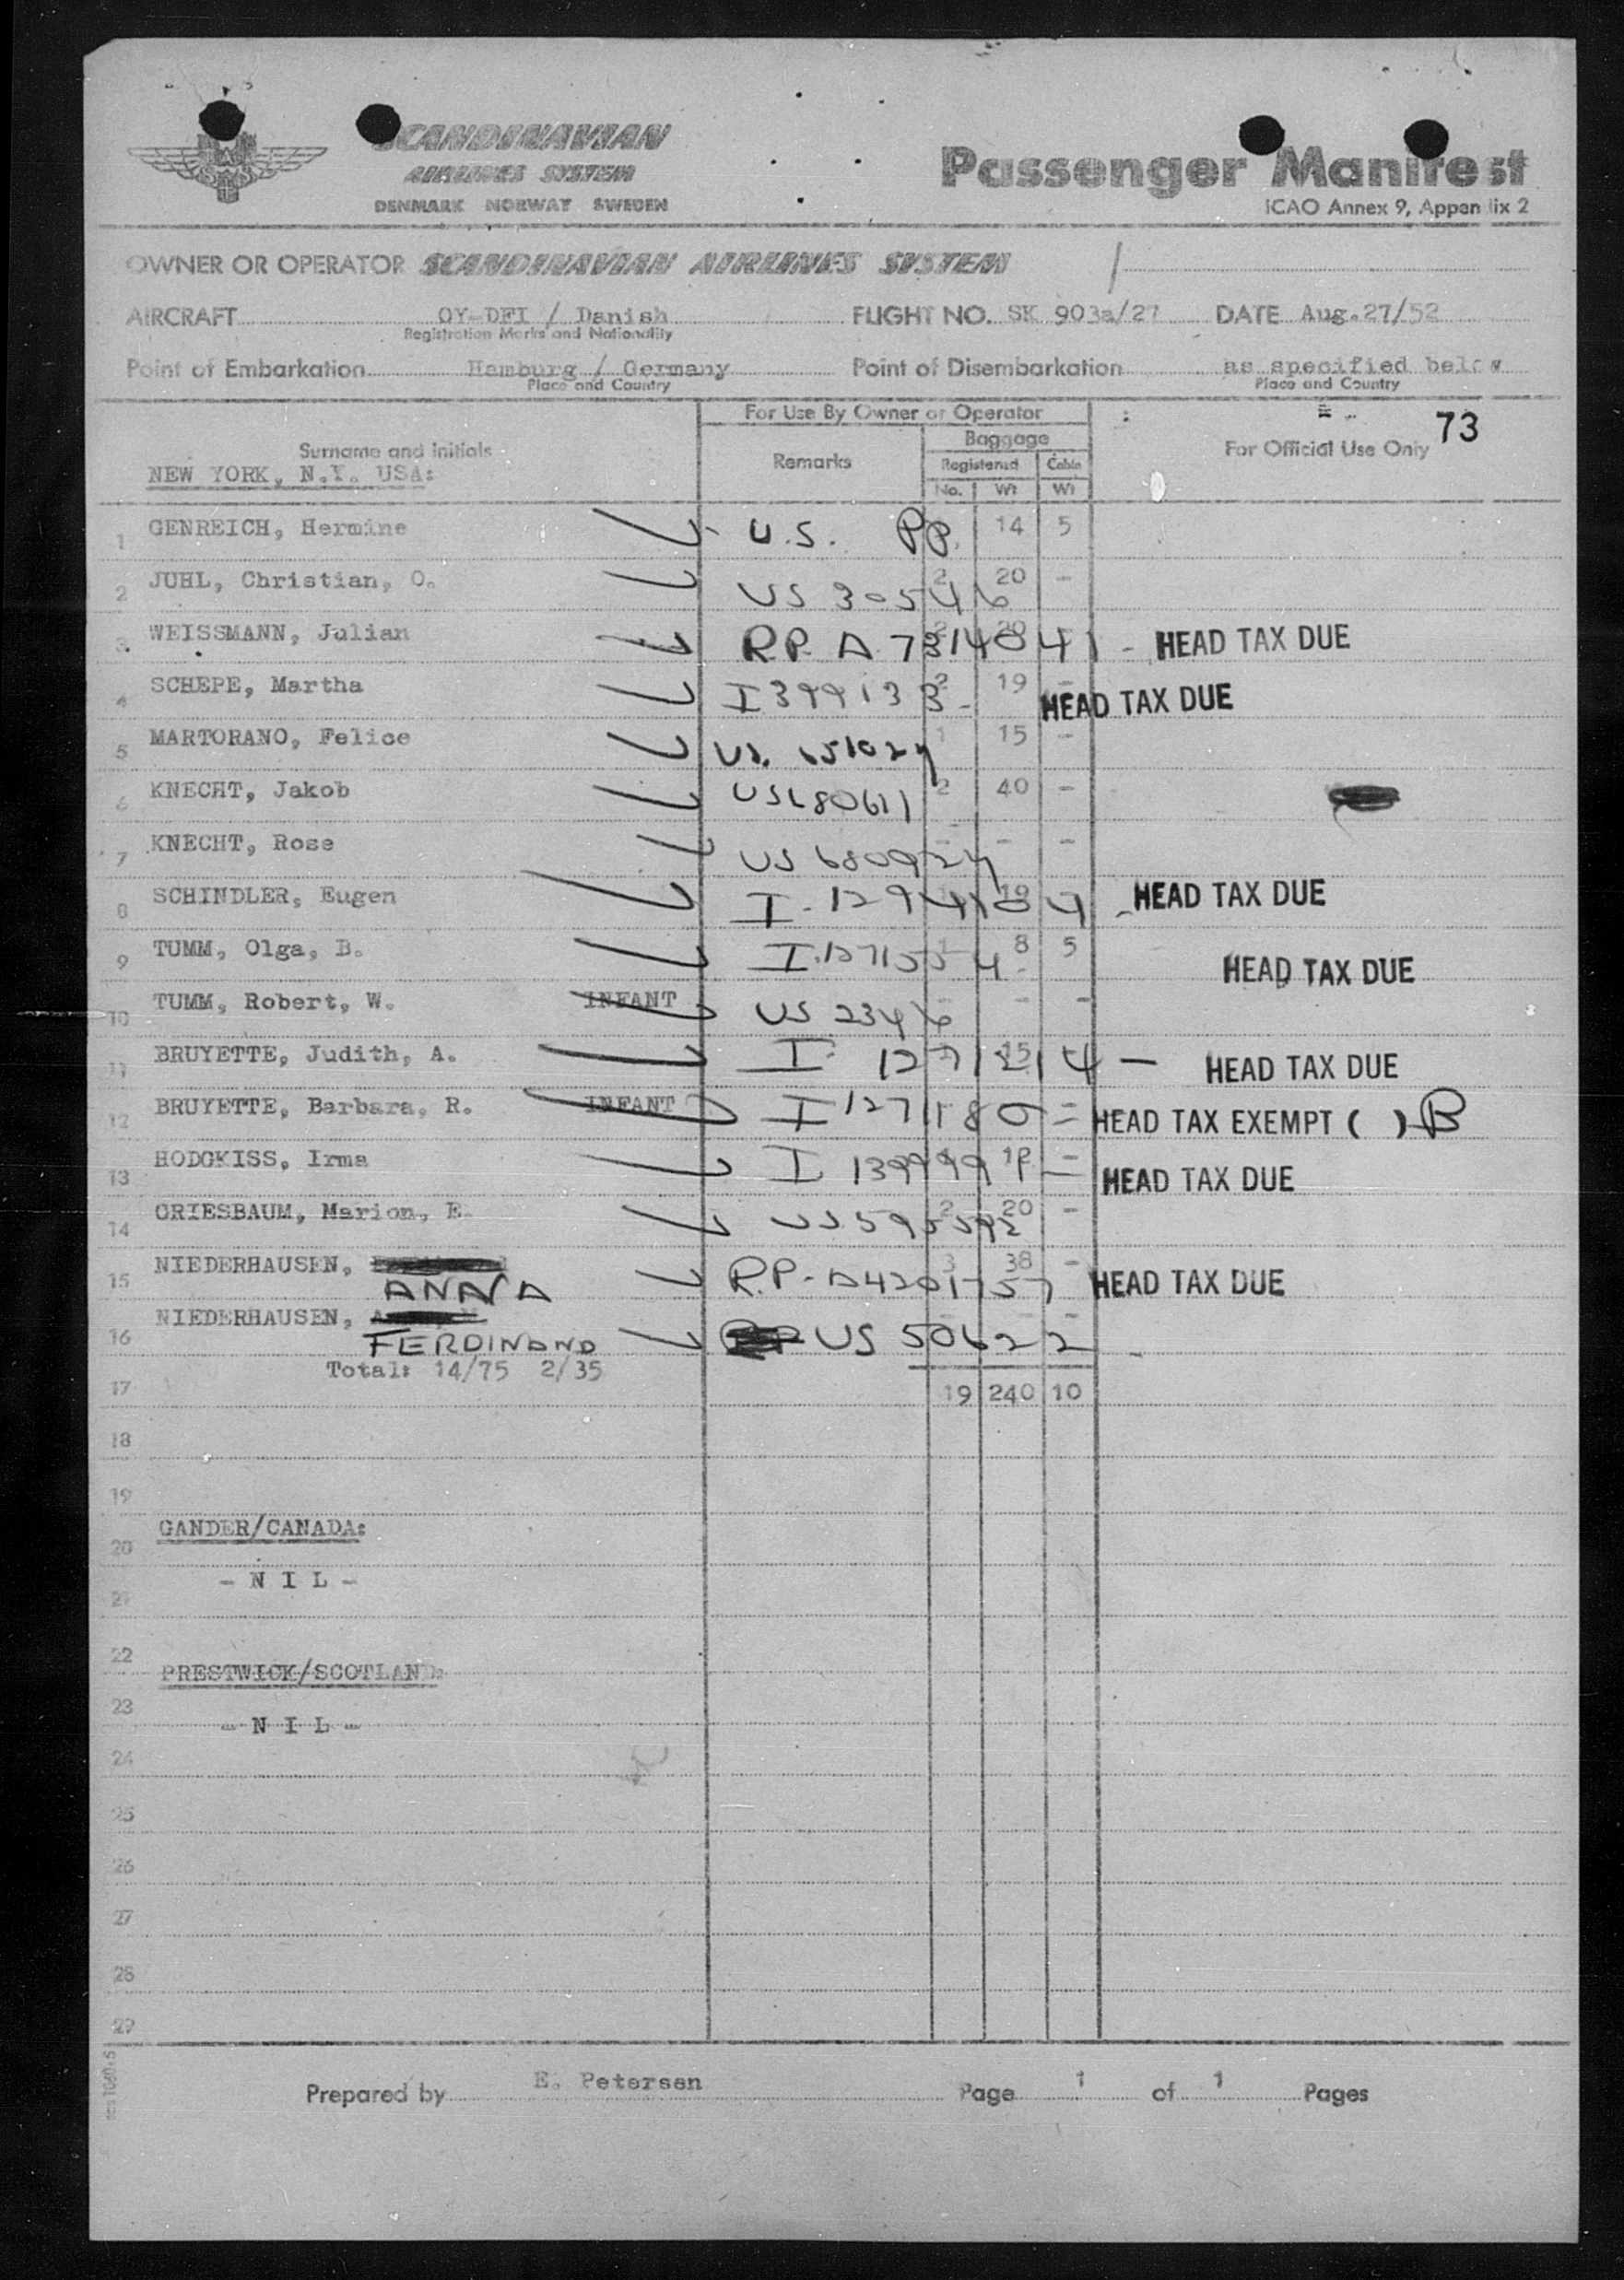 SCANDINAVIAN
AIRLINES SYSTEM
DENMARK NORWAY SWEDEN
Passenger Manifest
ICAO Annex 9, Appendix 2
OWNER OR OPERATOR SCANDINAVIAN AIRLINES SYSTEM
AIRCRAFT OY-DFI / Danish FLIGHT NO. SK 903a/27 DATE Aug.27/52
Registration Marks and Nationality
Point of Embarkation Hamburg / Germany Point of Disembarkation as specified below
Place and Country Place and Country
For Use By Owner or Operator
73
Surname and initials Remarks Baggage For Official Use Only
Registered Cabin
No. Wt Wt
NEW YORK, N.Y. USA:
1 GENREICH, Hermine U.S. PP. 14 5
2 JUHL, Christian, O. US 30546 2 20 -
3 WEISSMANN, Julian R.P. A 7314041 - HEAD TAX DUE
4 SCHEPE, Martha I 399133 - 2 19 - HEAD TAX DUE
5 MARTORANO, Felice US. 651024 1 15 -
6 KNECHT, Jakob US 680611 2 40 -
7 KNECHT, Rose US 680924 - -
8 SCHINDLER, Eugen I - 1294184 19 HEAD TAX DUE
9 TUMM, Olga, B. I. 1271554 - 8 5 HEAD TAX DUE
10 TUMM, Robert, W. INFANT US 2346 - - -
11 BRUYETTE, Judith, A. I 1271214 15 - HEAD TAX DUE
12 BRUYETTE, Barbara, R. INFANT I 1271180 - HEAD TAX EXEMPT ( ) B
13 HODGKISS, Irma I 1399991 - HEAD TAX DUE
14 GRIESBAUM, Marion, E. US 595592 2 20 -
15 NIEDERHAUSEN, R.P. - A4201757 3 38 - HEAD TAX DUE
ANNA
16 NIEDERHAUSEN, US 50622
FERDINAND
Total: 14/75 2/35
17 19 240 10
18
19
GANDER/CANADA:
20
- N I L -
21
22
PRESTWICK/SCOTLAND:
23
- N I L -
24
25
26
27
28
29
Prepared by E. Petersen Page 1 of 1 Pages